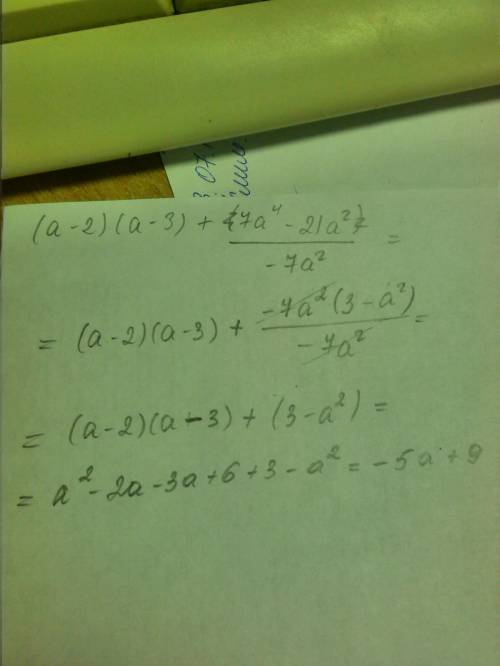 07.
(a-2)(a-3) + (7a⁴ - 21a²) / -7a² =
= (a-2)(a-3) + -7a²(3-a²) / -7a² =
= (a-2)(a-3) + (3-a²) =
= a² - 2a - 3a + 6 + 3 - a² = -5a + 9